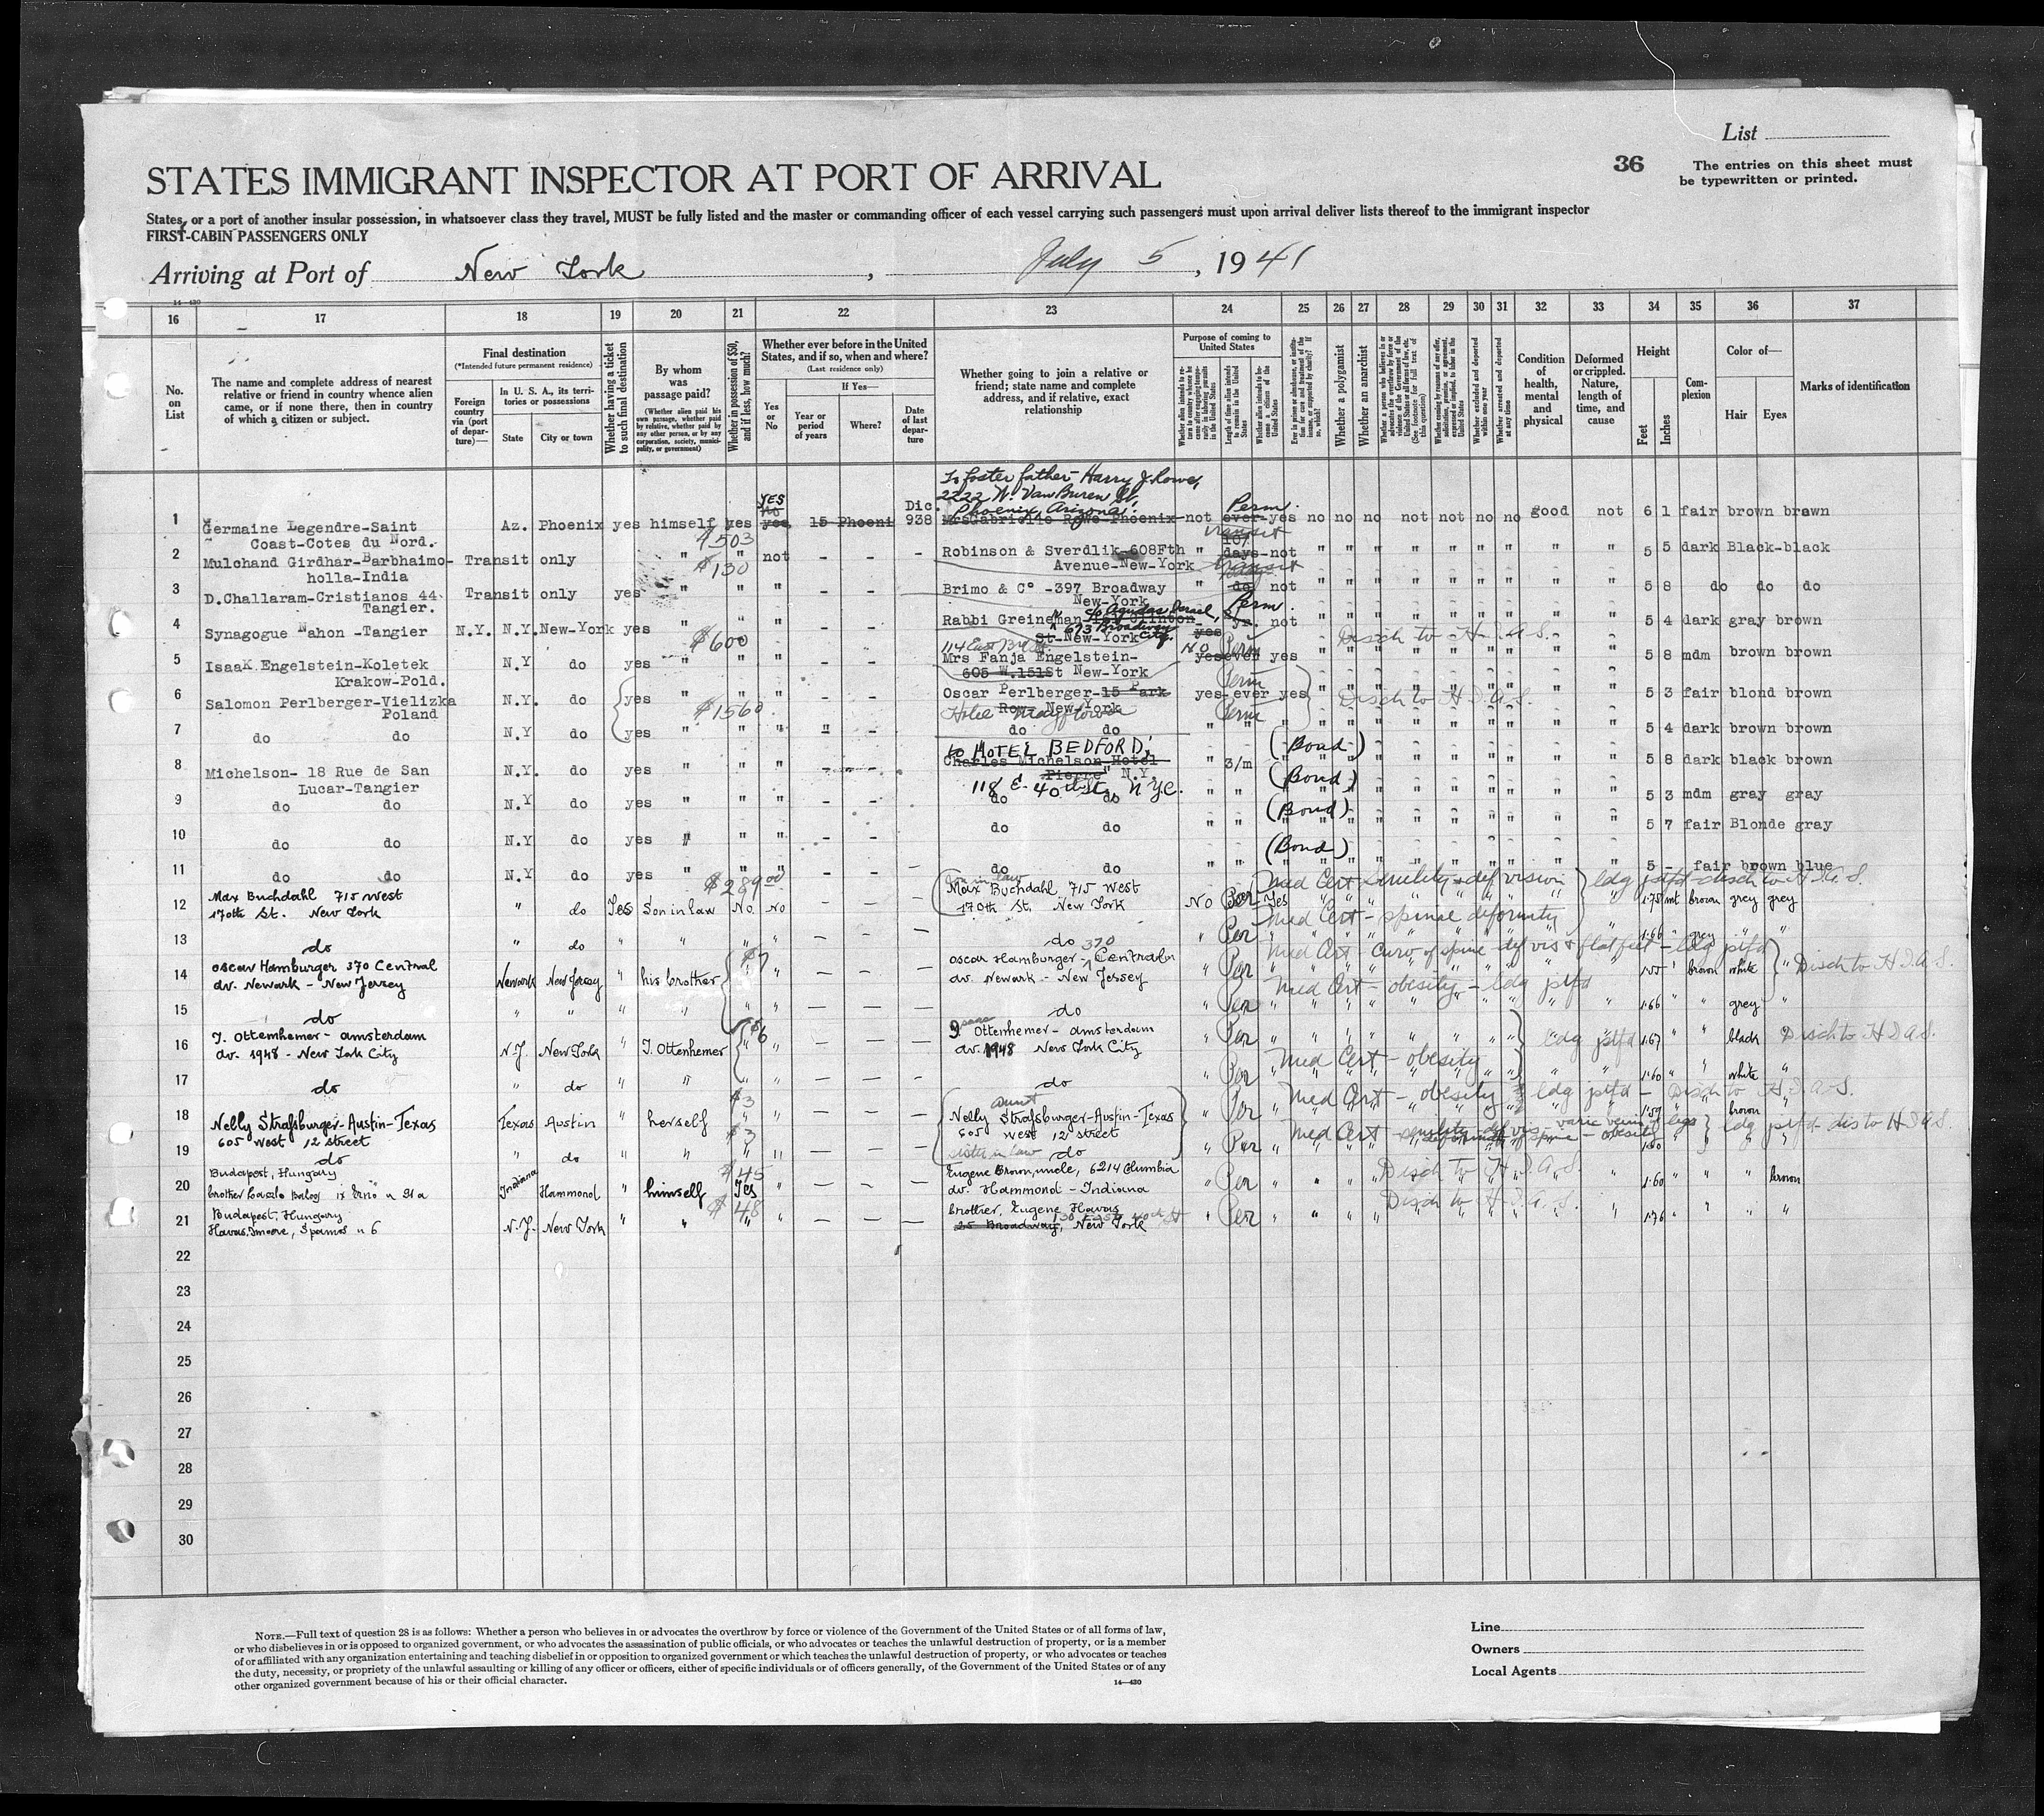 List
36
The entries on this sheet must
be typewritten or printed.
STATES IMMIGRANT INSPECTOR AT PORT OF ARRIVAL
States, or a port of another insular possession, in whatsoever class they travel, MUST be fully listed and the master or commanding officer of each vessel carrying such passengers must upon arrival deliver lists thereof to the immigrant inspector
FIRST-CABIN PASSENGERS ONLY
Arriving at Port of New York, July 5, 1941
14—430
16 17 18 19 20 21 22 23 24 25 26 27 28 29 30 31 32 33 34 35 36 37
No. on List
The name and complete address of nearest
relative or friend in country whence alien
came, or if none there, then in country
of which a citizen or subject.
Final destination
(*Intended future permanent residence)
Foreign country via (port of departure)—
In U. S. A., its territories or possessions
State
City or town
Whether having a ticket to such final destination
By whom was passage paid?
(Whether alien paid his own passage, whether paid by relative, whether paid by any other person, or by any corporation, society, municipality, or government)
Whether in possession of $50, and if less, how much?
Whether ever before in the United States, and if so, when and where?
(Last residence only)
Yes or No
If Yes—
Year or period of years
Where?
Date of last departure
Whether going to join a relative or
friend; state name and complete
address, and if relative, exact
relationship
Purpose of coming to United States
Length of time alien intends to remain in the United States
Whether alien intends to become a citizen of the United States
Whether a polygamist
Whether an anarchist
Whether excluded and deported within one year
Whether arrested and deported at any time
Condition of health, mental and physical
Deformed or crippled. Nature, length of time, and cause
Height
Feet
Inches
Complexion
Color of—
Hair
Eyes
Marks of identification
To foster father Harry J. Rowe,
2222 W. Van Buren St.
Phoenix, Arizona.
1 Germaine Legendre-Saint Az. Phoenix yes himself yes YES no yes 15 Phoeni Dic. 938 Mrs Gabrielle Rowe-Phoenix not Perm. ever yes no no no not not no no good not 6 1 fair brown brown
Coast-Cotes du Nord. $503
2 Mulchand Girdhar-Barbhaimo- Transit only " " not - - - Robinson & Sverdlik-608Fth " transit 107 days not " " " " " " " " " 5 5 dark Black-black
holla-India $130 Avenue-New-York
3 D.Challaram-Cristianos 44 Transit only yes " " " - - Brimo & C° -397 Broadway " do not " " " " " " " " " 5 8 do do do
Tangier. New-York
4 Synagogue Nahon -Tangier N.Y. N.Y. New-York yes " " " - - Rabbi Greineman c/o Agudas Israel, Perm. yr. not 5 4 dark gray brown
$600 St-New-York 673 Broadway City. yes Disch to H.I.A.S.
114 East
5 IsaaK.Engelstein-Koletek N.Y do yes " " " - - Mrs Fanja Engelstein- No Perm yes ever yes 5 8 mdm brown brown
Krakow-Pold. 605 W.151St New-York
6 Salomon Perlberger-Vielizka N.Y. do yes " " " - - Oscar Perlberger-15 Park yes-ever yes Perm 5 3 fair blond brown
Poland $1560 Row-New-York Disch to H.I.A.S.
Hotel Mayflower
7 do do N.Y do yes " " " " - do do Perm 5 4 dark brown brown
to HOTEL BEDFORD, (Bond)
8 Michelson- 18 Rue de San N.Y. do yes " " " Charles Michelson-Hotel " 3/m 5 8 dark black brown
Lucar-Tangier Pierre" N.Y. (Bond)
118 E. 40th St., N.Y.C.
9 do do N.Y do yes " " " - - do do " " (Bond) 5 3 mdm gray gray
10 do do N.Y do yes " " " - - do do " " (Bond) 5 7 fair Blonde gray
11 do do N.Y do yes " " " - - - do do " " 5 - fair brown blue
12 Max Buchdahl 715 West " do Yes Son in law $289.00 No. No son in law Max Buchdahl 715 West No Per Yes Med Cert - senility & def vision ldg pttd - disch to H.I.A.S. 1.75 mt brown grey grey
170th St. New York 170th St. New York
13 do " do " " " " — — — do " Per Med Cert - spinal deformity 1.66 " grey "
14 Oscar Hamburger 370 Central Newark New Jersey " his brother $7 " — — — Oscar Hamburger - 370 Central " Per Med Cert - curv. of spine def vis & flat feet - ldg pttd 1.55 " brown white " Disch to H.I.A.S.
av. Newark - New Jersey av. Newark - New Jersey
15 do " " " " " " — — — do " Per Med Cert - obesity - ldg pttd 1.66 " " grey "
16 I. Ottenheimer - amsterdam N.J. New York " I. Ottenheimer $6 " — — — Isaac Ottenheimer - amsterdam " Per ldg pttd 1.67 " " black Disch to H.I.A.S.
av. 1948 - New York City av. 1948 New York City
17 do " do " " " " — — — do " Per Med Cert - obesity 1.60 " " white "
18 Nelly Strafsburger-Austin-Texas Texas Austin " herself $3 " — — — aunt Nelly Strafsburger-Austin-Texas " Per Med Cert - obesity ldg pttd - Disch to H.I.A.S. 1.59 " " brown "
605 West 12 Street 605 West 12 Street
19 do " do " " $3 " — — — sister in law do " Per Med Cert - def vis - varic veins legs spine - obesity ldg pttd - dis to H.I.A.S. 1.60
20 Budapest, Hungary Indiana Hammond " himself $45 Yes " — — — Eugene Brown, uncle, 6214 Columbia " Per Disch to H.I.A.S. 1.60 " " " brown
brother Laszlo av. Hammond - Indiana
21 Budapest, Hungary N.J. New York " " $48 " " — — — brother, Eugene Havas " Per Disch to H.I.A.S. 1.76 " " " "
25 Broadway, New York
22
23
24
25
26
27
28
29
30
NOTE.—Full text of question 28 is as follows: Whether a person who believes in or advocates the overthrow by force or violence of the Government of the United States or of all forms of law,
or who disbelieves in or is opposed to organized government, or who advocates the assassination of public officials, or who advocates or teaches the unlawful destruction of property, or is a member
of or affiliated with any organization entertaining and teaching disbelief in or opposition to organized government or which teaches the unlawful destruction of property, or who advocates or teaches
the duty, necessity, or propriety of the unlawful assaulting or killing of any officer or officers, either of specific individuals or of officers generally, of the Government of the United States or of any
other organized government because of his or their official character.
14—430
Line
Owners
Local Agents